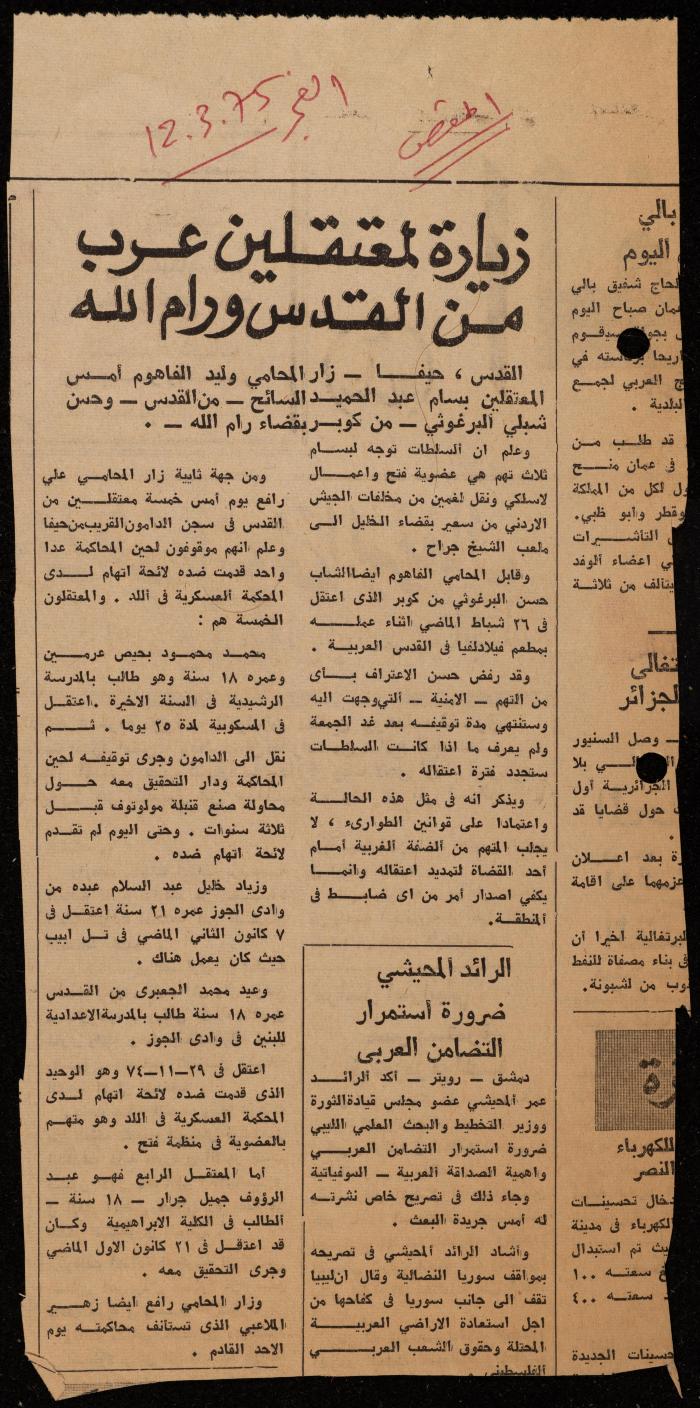 الفجر 12.3.75
زيارة لمعتقلين عرب
من القدس ورام الله
القدس ، حيفا — زار المحامي وليد الفاهوم أمس
المعتقلين بسام عبد الحميد السائح — من القدس — وحسن
شبلي البرغوثي — من كوبر بقضاء رام الله — .
وعلم ان السلطات توجه لبسام
ثلاث تهم هي عضوية فتح واعمال
لاسلكي ونقل لغمين من مخلفات الجيش
الاردني من سعير بقضاء الخليل الى
ملعب الشيخ جراح .
وقابل المحامي الفاهوم ايضا الشاب
حسن البرغوثي من كوبر الذى اعتقل
فى ٢٦ شباط الماضي اثناء عمله
بمطعم فيلادلفيا في القدس العربية .
وقد رفض حسن الاعتراف بأى
من التهم — الامنية — التي وجهت اليه
وستنتهي مدة توقيفه بعد غد الجمعة
ولم يعرف ما اذا كانت السلطات
ستجدد فترة اعتقاله .
ويذكر انه فى مثل هذه الحالة
واعتمادا على قوانين الطوارىء ، لا
يجلب المتهم من الضفة الغربية أمام
أحد القضاة لتمديد اعتقاله وانما
يكفي اصدار أمر من اى ضابط فى
المنطقة.
ومن جهة ثانية زار المحامي علي
رافع يوم أمس خمسة معتقلين من
القدس فى سجن الدامون القريب من حيفا
وعلم انهم موقوفون لحين المحاكمة عدا
واحد قدمت ضده لائحة اتهام لدى
المحكمة العسكرية فى اللد . والمعتقلون
الخمسة هم :
محمد محمود بحيص عرمين
وعمره ١٨ سنة وهو طالب بالمدرسة
الرشيدية فى السنة الاخيرة . اعتقل
فى المسكوبية لمدة ٢٥ يوما . ثم
نقل الى الدامون وجرى توقيفه لحين
المحاكمة ودار التحقيق معه حول
محاولة صنع قنبلة مولوتوف قبل
ثلاثة سنوات . وحتى اليوم لم تقدم
لائحة اتهام ضده .
وزياد خليل عبد السلام عبده من
وادى الجوز عمره ٢١ سنة اعتقل فى
٧ كانون الثاني الماضي فى تل ابيب
حيث كان يعمل هناك .
وعيد محمد الجعبرى من القدس
عمره ١٨ سنة طالب بالمدرسة الاعدادية
للبنين فى وادى الجوز .
اعتقل فى ٢٩—١١—٧٤ وهو الوحيد
الذى قدمت ضده لائحة اتهام لدى
المحكمة العسكرية فى اللد وهو متهم
بالعضوية فى منظمة فتح .
أما المعتقل الرابع فهو عبد
الرؤوف جميل جرار — ١٨ سنة —
الطالب فى الكلية الابراهيمية وكان
قد اعتقل فى ٢١ كانون الاول الماضي
وجرى التحقيق معه .
وزار المحامي رافع ايضا زهير
الملاعبي الذى تستأنف محاكمته يوم
الاحد القادم .
الرائد المحيشي
ضرورة أستمرار
التضامن العربى
دمشق — رويتر — أكد الرائد
عمر المحيشي عضو مجلس قيادة الثورة
ووزير التخطيط والبحث العلمي الليبي
ضرورة استمرار التضامن العربي
واهمية الصداقة العربية — السوفياتية
وجاء ذلك فى تصريح خاص نشرته
له أمس جريدة البعث .
وأشاد الرائد المحيشي فى تصريحه
بمواقف سوريا النضالية وقال ان ليبيا
تقف الى جانب سوريا فى كفاحها من
اجل استعادة الاراضي العربية
المحتلة وحقوق الشعب العربي
الفلسطيني .
بالي
اليوم
لحاج شفيق بالي
عمان صباح اليوم
سيقوم
فى
العربي لجمع
لبلدية .
قد طلب من
فى عمان منح
ول لكل من المملكة
وقطر وابو ظبي.
التأشيرات
اعضاء الوفد
يتألف من ثلاثة
تغالى
لجزائر
— وصل السنيور
بلا
الجزائرية أول
حول قضايا قد
رة بعد اعلان
عزمهما على اقامة
لبرتغالية اخيرا أن
فى بناء مصفاة للنفط
من لشبونة.
رة
للكهرباء
النصر
دخال تحسينات
لكهرباء فى مدينة
يث تم استبدال
سعته ١٠٠
سعته ٤٠٠
حسينات الجديدة